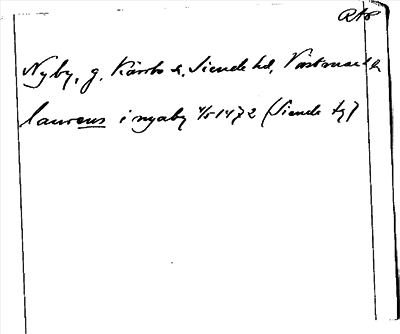 RAp
Nyby, g. Kärrbo s, Siende hd, Västmanl
laurens i nyaby 4/5 1472 (Siende tg)